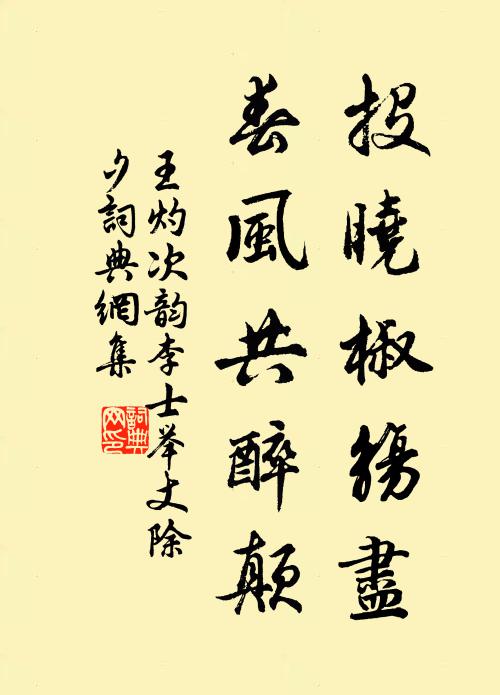 投曉椒觴盡
春風共醉顛
王灼次韵李士举丈除
夕詞典網集
詞典网印